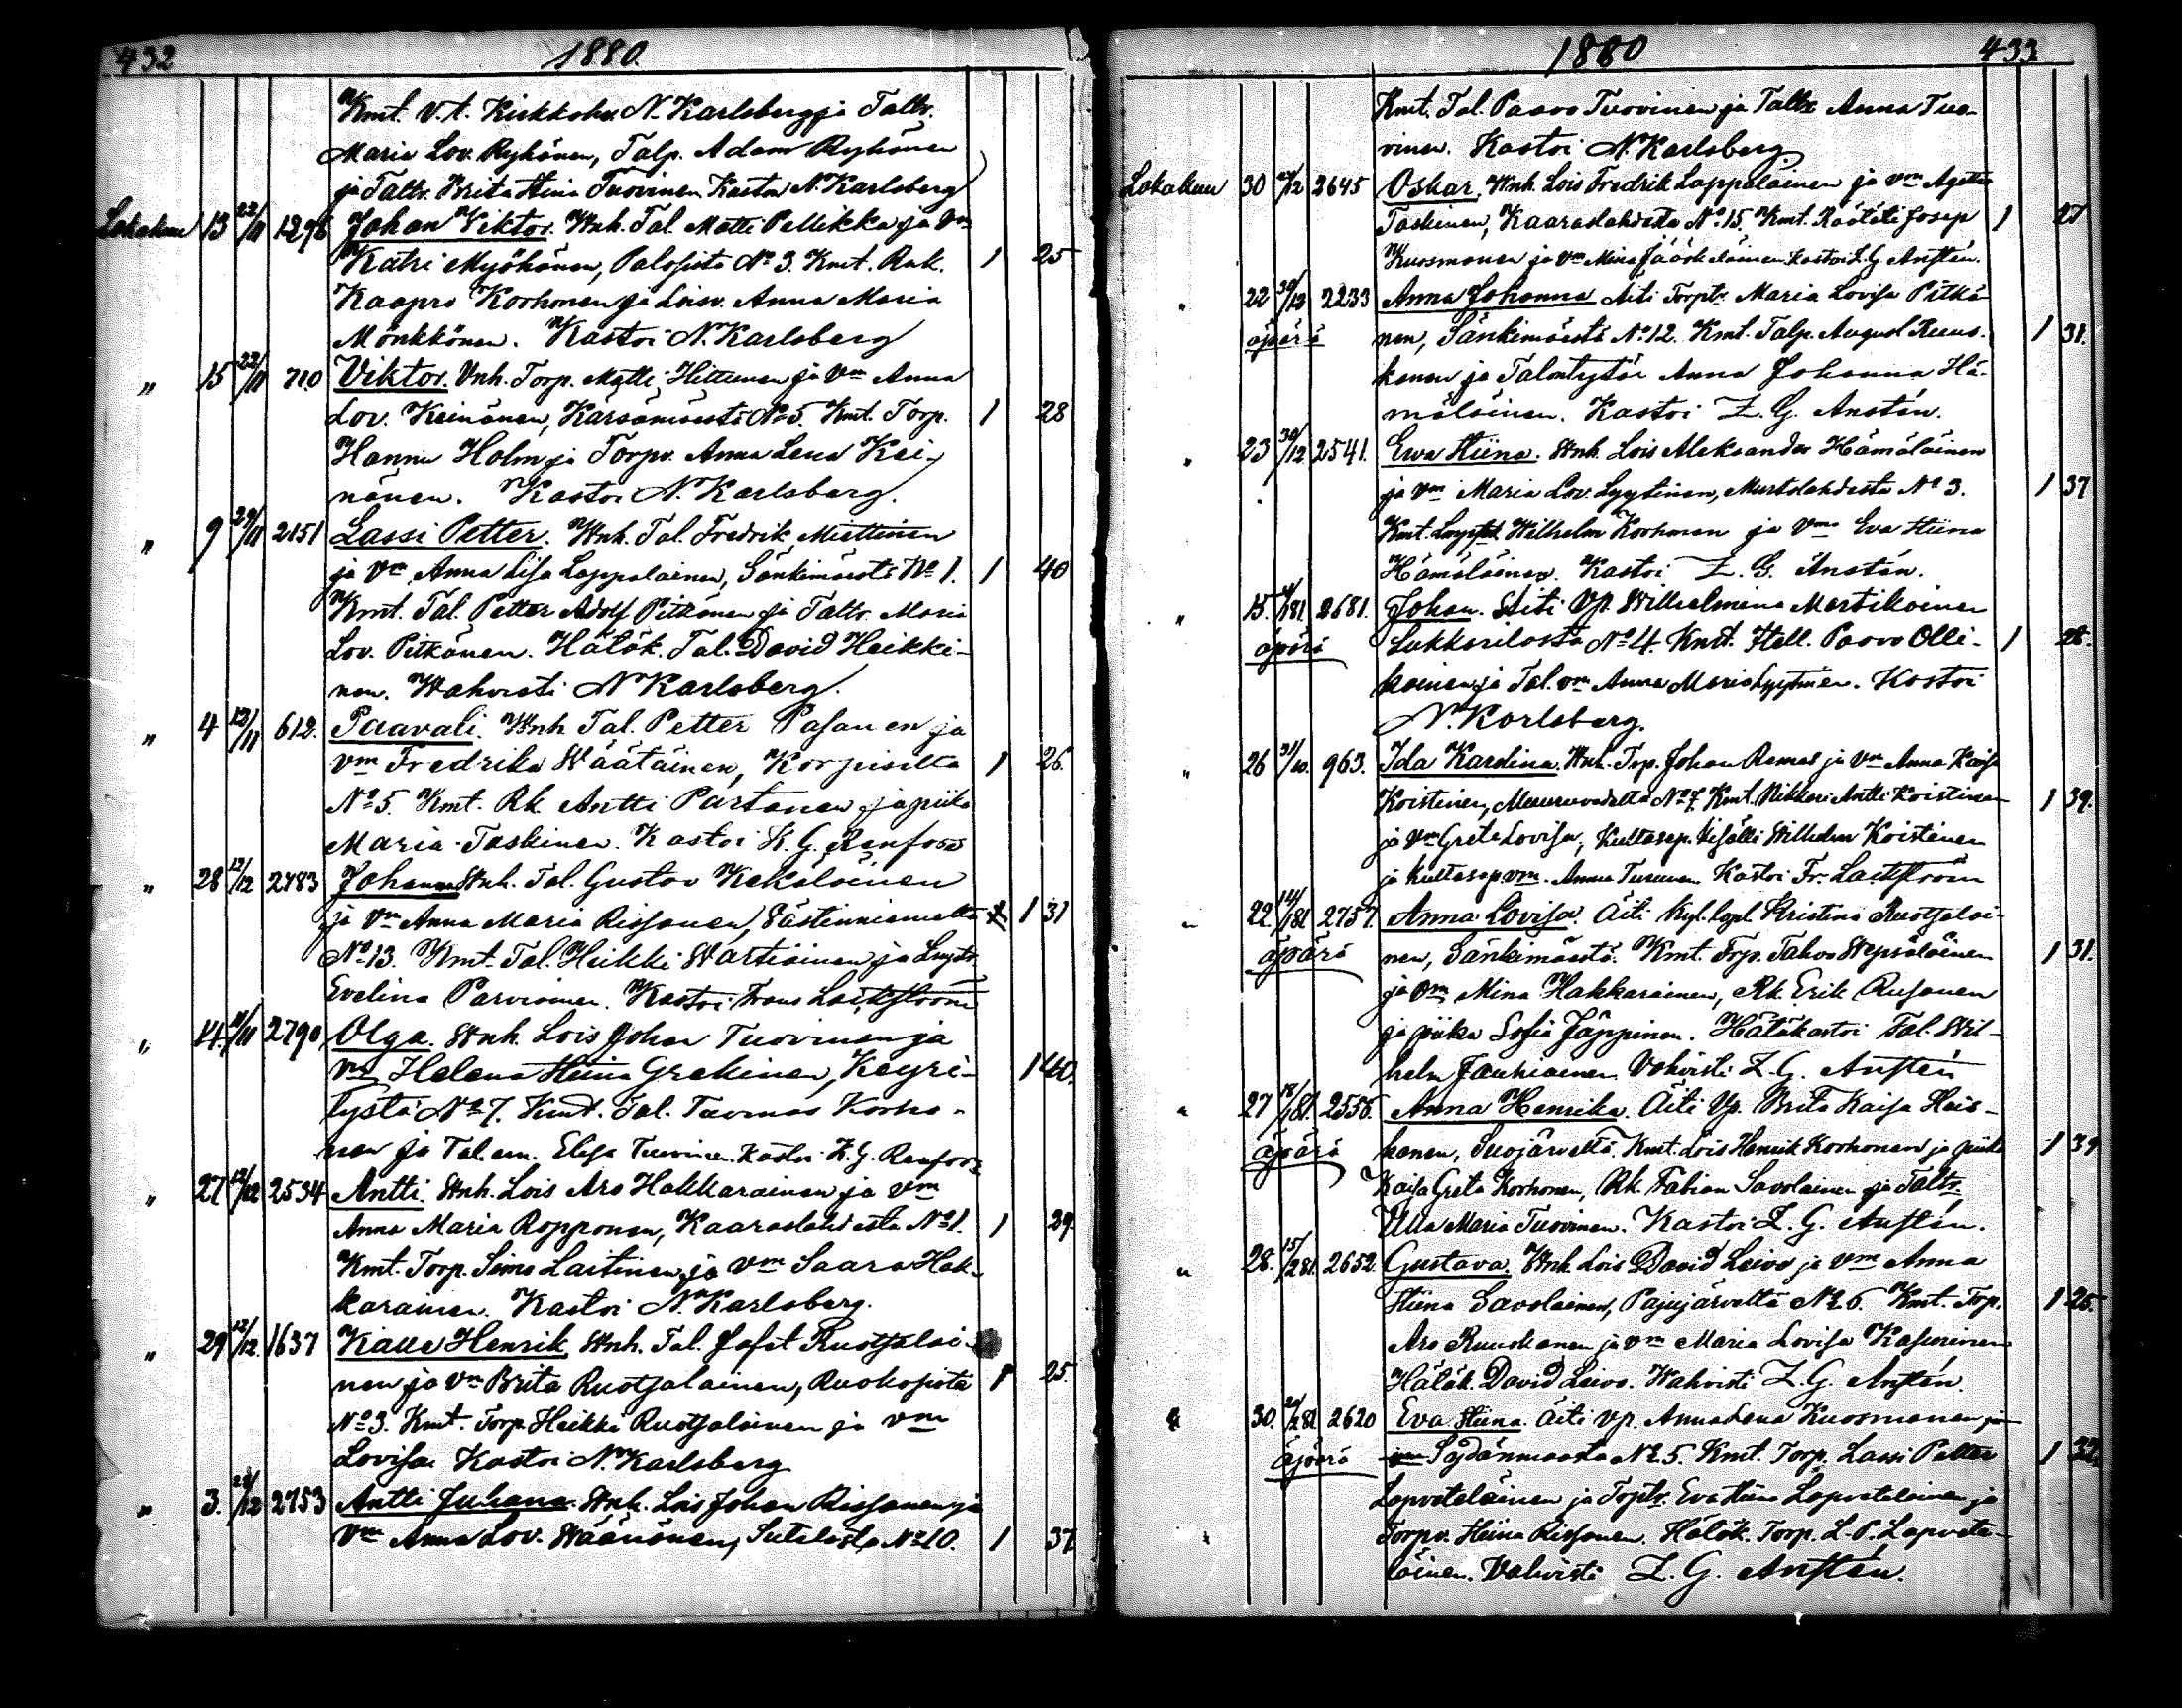 432 1880.
Kmt. v.t. Kirkkoher. N. Karlsberg ja Taltr.
Maria Lov. Ryhänen, Talp. Adam Ryhänen
ja Taltr. Brita Stina Tuovinen Kastoi N. Karlsberg
Lokakuu 13 22/11 1296 Johan Viktor. Wnh. Tal. Matti Pellikka ja vm
Katri Myöhänen, Palosista No 3. Kmt. Rnk. 1 25
Kaapro Korhonen ja Loisv. Anna Maria
Mönkkönen. Kastoi N. Karlsberg
" 15 22/11 710 Viktor. Vnh. Torp. Matti Hittunen ja Vm Anna
Lov. Keinänen, Karsämäestä No 5. Kmt. Torp. 1 28
Hannu Holm ja Torpv. Anna Lena Kei-
nänen. Kastoi N. Karlsberg.
" 9 29/11 2151 Lassi Petter. Wnh. Tal. Fredrik Miettinen
ja Vm Anna Lisa Lappalainen, Sänkimäestä No 1. 1 40
Kmt. Tal. Petter Adolf Pitkänen ja Taltr. Maria
Lov. Pitkänen. Hätäk. Tal. David Heikki-
nen. Wahvisti N. Karlsberg.
" 4 12/11 612. Paavali. Wnh Tal. Petter Pasanen ja
vm Fredrika Wäätäinen, Korpiselta 1 26.
No 5. Kmt. Rk. Antti Partanen ja piika
Maria Taskinen. Kastoi K. G. Renfors
" 28 12/12 2783 Johanna Wnh. Tal. Gustav Kekäläinen
ja Vm Anna Maria Rissanen, Västinniemeltä 1 31
No 13. Kmt. Tal. Heikki Wartiainen ja
Evelina Parviainen. Kastoi Frans Laitström
" 14. 11/11 2790 Olga. Wnh. Lois Johan Tuovinen ja
vm Helena Stiina Grekinen, Keyri- 1 40.
tystä No 7. Kmt. Tal. Tuomas Korho-
nen ja Tal. em. Elisa Tuovinen. Kastoi K. G. Renfors
" 27 12/12 2534 Antti. Wnh. Lois Aro Hakkarainen ja vm
Anna Maria Ropponen, Kaaraslahdesta No 1. 1 29
Kmt. Torp. Simo Laitinen ja Vm Saara Hak-
karainen. Kastoi N. Karlsberg.
" 29 12/12. 1637 Kalle Henrik. Wnh. Tal. Jafet Ruotsalai-
nen ja Vm Brita Ruotsalainen, Ruokosista 1 25
No 3. Kmt. Torp. Heikki Ruotsalainen ja vm
Lovisa. Kastoi N. Karlsberg
" 3. 2753 Antti Juhana. Wnh. Lois Johan Rissanen ja
Vm Anna Lov. Wäänänen, Sutelasta No 10. 1 37
1880 433
Kmt. Tal. Paavo Tuovinen ja Taltr. Anna Tuo-
vinen. Kastoi N. Karlsberg
Lokakuu 30 2645 Oskar. Wnh. Lois Fredrik Lappalainen ja vm Agatta
Taskinen, Kaaraslahdesta No 15. Kmt. Räätäli Josep 1 27
Kuosmanen ja Vm Mina Jääskeläinen. Kastoi Z. G. Anstén.
" 22 30/12 2233 Anna Johanna Äiti Torptr. Maria Lovisa Pitkä-
äpärä nen, Sänkimäestä No 12. Kmt. Talp. August Ruus- 1 31.
kanen ja Talontytär Anna Johanna Hä-
mäläinen. Kastoi Z. G. Anstén.
" 23 30/12 2541. Ewa Stiina. Wnh. Lois Aleksander Hämäläinen
ja vm Maria Lov. Lyytinen, Murtolahdesta No 3. 1 37
Kmt. Wilhelm Korhonen ja Vm Eva Stiina
Hämäläinen. Kastoi Z. G. Anstén.
" 15. 2681. Johan. Äiti Vp. Wilhelmina Martikainen
äpärä Lukkarilasta No 4. Kmt. Itell. Paavo Olli- 1 28.
kainen ja Tal. vm Anna Maria Lyytinen. Kastoi
N. Karlsberg.
" 26 31/10. 963. Ida Karolina. Wnh. Torp. Johan Remes ja Vm Anna Kaisa
Koistinen, Muuruvedeltä No 7. Kmt. Nikkari Antti Koistinen 1 39.
ja Vm Greta Lovisa, Kultasep. kisälli Wilhelm Koistinen
ja kultasep. vm. Anna Turunen. Kastoi Fr. Laitström
" 22. 14/1 81 2757. Anna Lovisa. Äiti Kristina Ruotsalai-
äpärä nen, Sänkimäestä. Kmt. Torp. Tahvo Wepsäläinen 1 31.
ja Vm Mina Hakkarainen, Rk. Erik Rusanen
ja piika Sofia Jäppinen. Hätäkastoi Tal. Wil-
helm Jauhiainen. Vahvisti Z. G. Anstén
" 27 18/1 81. 2556. Anna Henrika. Äiti Vp. Brita Kaisa Heis-
äpärä kanen, Suojärveltä. Kmt. Lois Henrik Korhonen ja piika 1 39
Kaisa Greta Korhonen, Rk. Fabian Savolainen ja Taltr.
Ulla Maria Tuovinen. Kastoi Z. G. Anstén.
" 28. 15/2 81. 2652. Gustava. Wnh. Lois David Leivo ja vm Anna
Stiina Savolainen, Pajujärveltä No 6. Kmt. Torp. 1 25.
Aro Ruuskanen ja vm Maria Lovisa Kasurinen
Hätäk. David Leivo. Wahvisti Z. G. Anstén.
" 30. 20/2 81 2620 Eva Stiina. Äiti vp. Anna Lena Kuosmanen ja
äpärä vm Säyänmaasta No 5. Kmt. Torp. Lassi Petter 1 32.
Lapveteläinen ja Torptr. Eva Stiina Lapveteläinen ja
Torpv. Stiina Rissanen. Hätäk. Torp. L. P. Lapvete-
läinen. Vahvisti Z. G. Anstén.